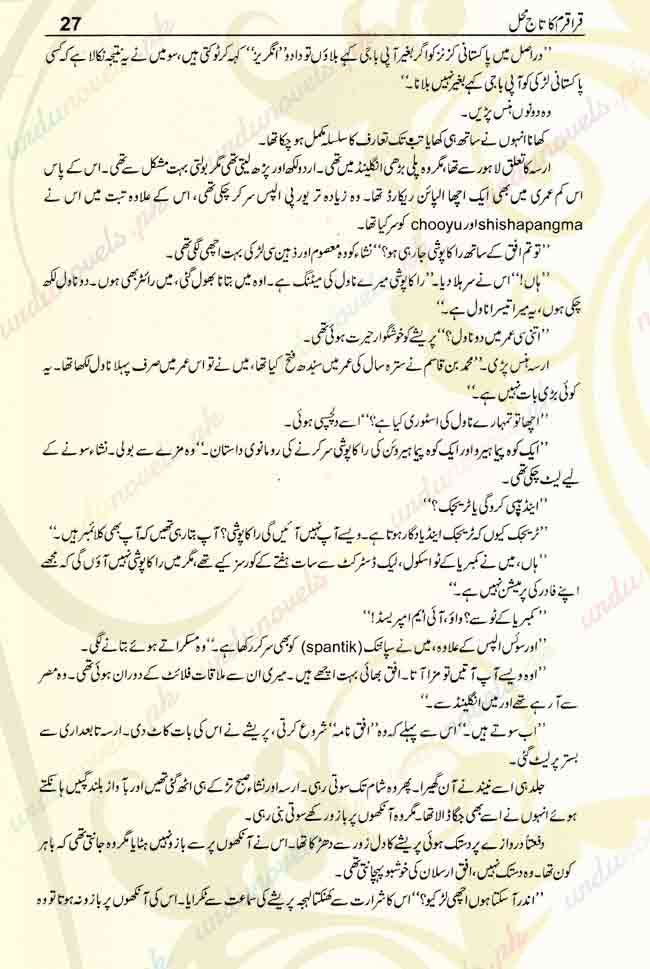 قراقرم کا تاج محل 27
’’دراصل میں پاکستانی کزنز کو اگر بغیر آپی باجی کہے بلاؤں تو دادو ’’انگریز‘‘ کہہ کر ٹوکتی ہیں، سو میں نے یہ نتیجہ نکالا ہے کہ کسی
پاکستانی لڑکی کو آپی باجی کہے بغیر نہیں بلانا۔‘‘
وہ دونوں ہنس پڑیں۔
کھانا انہوں نے ساتھ ہی کھایا تب تک تعارف کا سلسلہ مکمل ہو چکا تھا۔
ارسہ کا تعلق لاہور سے تھا، مگر وہ پلی بڑھی انگلینڈ میں تھی۔ اردو لکھ اور پڑھ لیتی تھی مگر بولتی بہت مشکل سے تھی۔ اس کے پاس
اس کم عمری میں بھی ایک اچھا الپائن ریکارڈ تھا۔ وہ زیادہ تر یورپی الپس سر کر چکی تھی، اس کے علاوہ تبت میں اس نے
shishapangma اور chooyu کو سر کیا تھا۔
’’تو تم افق کے ساتھ راکاپوشی جا رہی ہو؟‘‘ نشاء کو وہ معصوم اور ذہین سی لڑکی بہت اچھی لگی تھی۔
’’ہاں!‘‘ اس نے سر ہلا دیا۔ ’’راکاپوشی میرے ناول کی سیٹنگ ہے۔ اوہ میں بتانا بھول گئی، میں رائٹر بھی ہوں۔ دو ناول لکھ
چکی ہوں، یہ میرا تیسرا ناول ہے۔‘‘
’’اتنی سی عمر میں دو ناول؟‘‘ پریشے کو خوشگوار حیرت ہوئی تھی۔
ارسہ ہنس پڑی۔ ’’محمد بن قاسم نے سترہ سال کی عمر میں سندھ فتح کیا تھا، میں نے تو اس عمر میں صرف پہلا ناول لکھا تھا۔ یہ
کوئی بڑی بات نہیں ہے۔‘‘
’’اچھا تو تمہارے ناول کی اسٹوری کیا ہے؟‘‘ اسے دلچسپی ہوئی۔
’’ایک کوہ پیما ہیرو اور ایک کوہ پیما ہیروئن کی راکاپوشی سر کرنے کی رومانوی داستان۔‘‘ وہ مزے سے بولی۔ نشاء سونے کے
لیے لیٹ چکی تھی۔
’’اینڈ ہیپی کرو گی یا ٹریجک؟‘‘
’’ٹریجک کیوں کہ ٹریجک اینڈ یادگار ہوتا ہے۔ ویسے آپ نہیں آئیں گی راکاپوشی؟ آپ بتا رہی تھیں کہ آپ بھی کلائمبر ہیں۔‘‘
’’ہاں، میں نے کمبریا کے ٹو اسکول، لیک ڈسٹرکٹ سے سات ہفتے کے کورسز کیے تھے، مگر میں راکاپوشی نہیں آؤں گی کہ مجھے
اپنے فادر کی پرمیشن نہیں ہے۔‘‘
’’کمبریا کے ٹو سے؟ واؤ، آئی ایم امپریسڈ!‘‘
’’اور سوئس الپس کے علاوہ، میں نے سپانٹک (spantik) کو بھی سر کر رکھا ہے۔‘‘ وہ مسکراتے ہوئے بتانے لگی۔
’’اوہ ویسے آپ آتیں تو مزا آتا۔ افق بھائی بہت اچھے ہیں۔ میری ان سے ملاقات فلائٹ کے دوران ہوئی تھی۔ وہ مصر
سے آ رہے تھے اور میں انگلینڈ سے۔‘‘
’’اب سوتے ہیں۔‘‘ اس سے پہلے کہ وہ ’’افق نامہ‘‘ شروع کرتی، پریشے نے اس کی بات کاٹ دی۔ ارسہ تابعداری سے
بستر پر لیٹ گئی۔
جلد ہی اسے نیند نے آن گھیرا۔ پھر وہ شام تک سوتی رہی۔ ارسہ اور نشاء صبح تڑکے ہی اٹھ گئی تھیں اور بآواز بلند گپیں ہانکتے
ہوئے انہوں نے اسے بھی جگا ڈالا تھا۔ مگر وہ آنکھوں پر بازو رکھے سوتی بنی رہی۔
دفعتاً دروازے پر دستک ہوئی پریشے کا دل زور سے دھڑکا تھا۔ اس نے آنکھوں پر سے بازو نہیں ہٹایا مگر وہ جانتی تھی کہ باہر
کون تھا۔ وہ دستک نہیں، افق ارسلان کی خوشبو پہچانتی تھی۔
’’اندر آ سکتا ہوں اچھی لڑکیو؟‘‘ اس کا شرارت سے کھنکتا لہجہ پریشے کی سماعت سے ٹکرایا۔ اس کی آنکھوں پر بازو نہ ہوتا تو وہ
urdunovels.pk